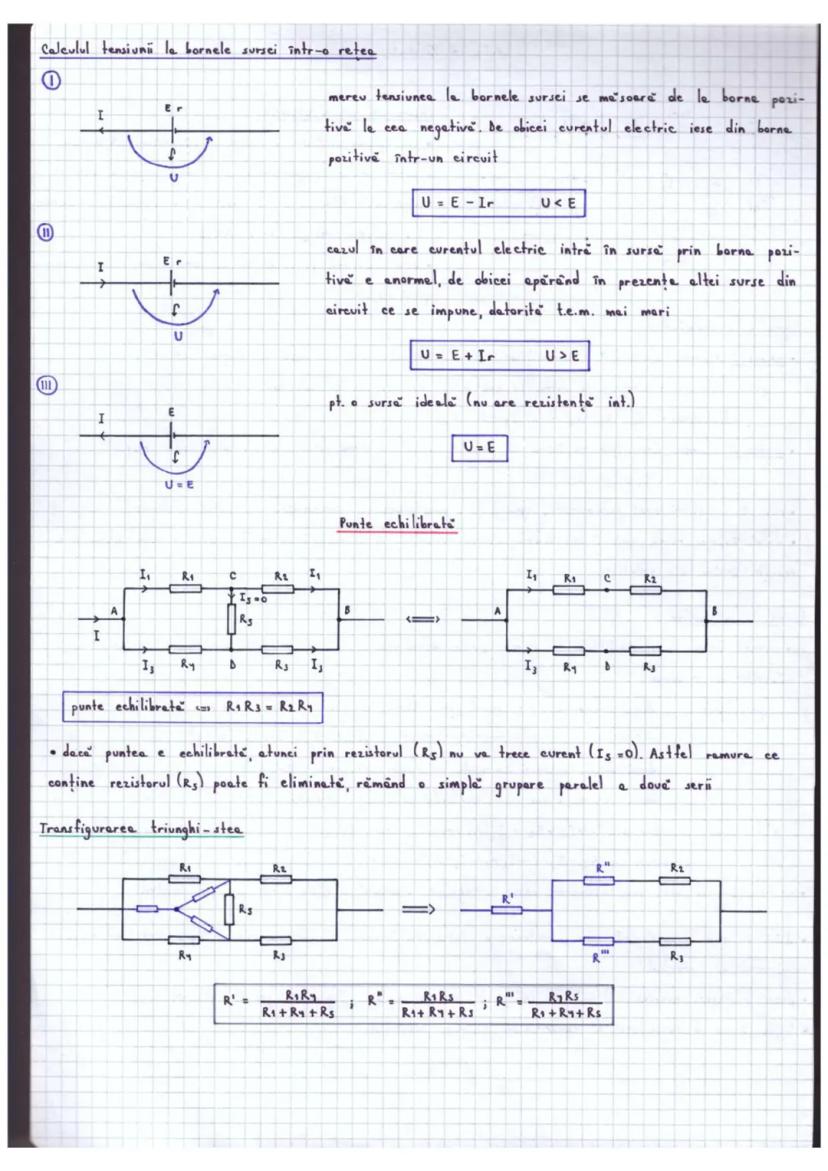 Calculul tensiunii la bornele sursei într-o rețea
I
mereu tensiunea la bornele sursei se măsoară de la borna pozi-
tivă la cea negativă. De obicei curentul electric iese din borna
pozitivă într-un circuit
I E r
U
U = E - Ir U < E
II
cazul în care curentul electric intră în sursă prin borna pozi-
tivă e anormal, de obicei apărând în prezența altei surse din
circuit ce se impune, datorită t.e.m. mai mari
I E r
U
U = E + Ir U > E
III
pt. o sursă ideală (nu are rezistență int.)
I E
U = E
U = E
Punte echilibrată
I1 R1 C R2 I1 I1 R1 C R2
I5=0
A R5 B <=> A B
I
I3 R4 D R3 I3 I3 R4 D R3
punte echilibrată <=> R1R3 = R2R4
• dacă puntea e echilibrată, atunci prin rezistorul (R5) nu va trece curent (I5=0). Astfel ramura ce
conține rezistorul (R5) poate fi eliminată, rămând o simplă grupare paralel a două serii
Transfigurarea triunghi-stea
R1 R2 R" R2
R5 => R'
R4 R3 R''' R3
R' = R1R4 / R1+R4+R5 ; R" = R1R5 / R1+R4+R5 ; R''' = R4R5 / R1+R4+R5